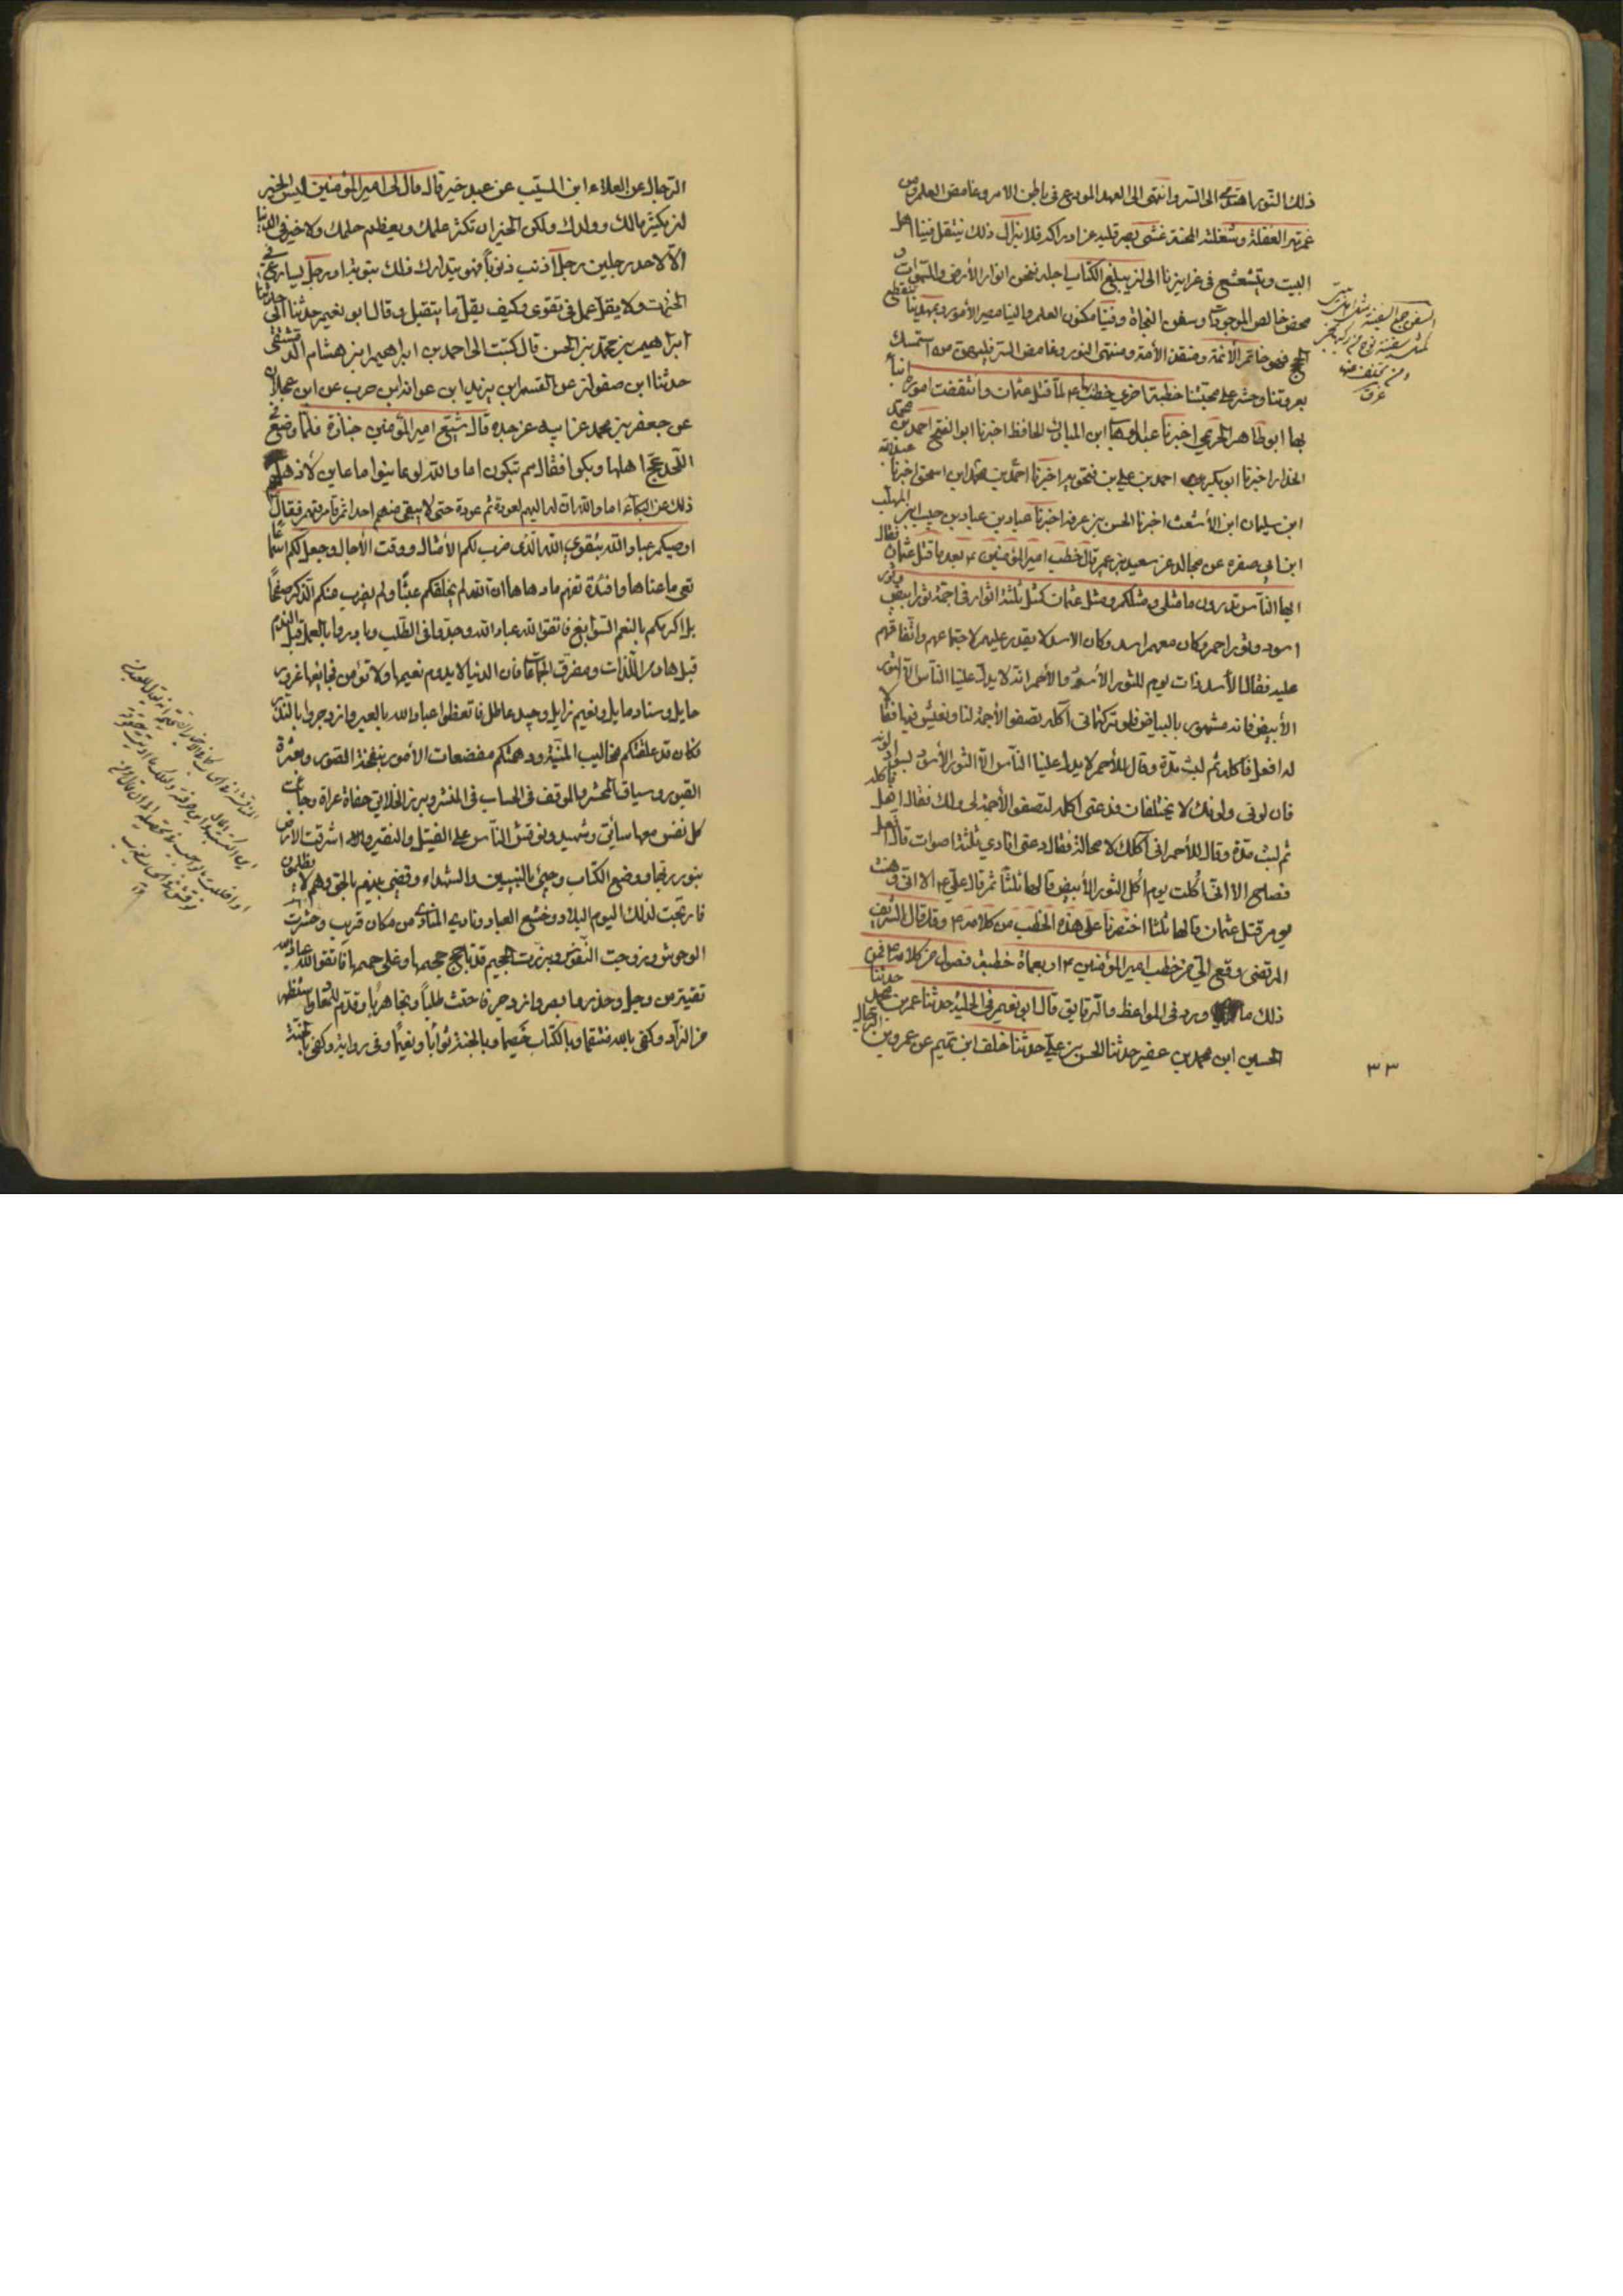 ذلك النور اهتدى الى السر وانتهى الى العهد المودع فى باطن الامر وغامض العلم ومن
غمرته الغفلة وشغلته المحنة غشى بصر قلبه عن ادراكه فلا يزال ذلك ينتقل فينا اهل
البيت ويتشعشع فى غرايزنا الى ان يبلغ الكتاب اجله فنحن انوار الأرض والسموات و
محض خالص الموجودات وسفن النجاة وفينا مكنون العلم والينا مصير الأمور وبمهدينا تنقطع
الحجج فهو خاتم الأئمة ومنقذ الأمة ومنتهى النور وغامض السر فليهن من استمسك
بعروتنا وحشر على محبتنا خطبة اخرى خطب بها ع لما قتل عثمان وانتقضت اموره انبأ
بها ابو طاهر الخريمى اخبرنا عبد الوهاب ابن المبارك الحافظ اخبرنا ابو الفتح احمد بن محمد
الحداد اخبرنا ابو بكر احمد بن على بن فنحويه اخبرنا احمد بن محمد ابن اسحق اخبرنا عبد الله
ابن سليمان ابن الأشعث اخبرنا الحسن بن عرفه اخبرنا عباد بن عباد بن حبيب ابن المهلب
ابن ابى صفره عن مجالد عن سعيد بن عمير قال خطب امير المؤمنين ع بعد ما قتل عثمان فقال
ايها الناس تدرون ما مثلى ومثلكم ومثل عثمان كمثل ثلثة اثوار فى اجمة ثور ابيض وثور
اسود وثور احمر وكان معهم اسد وكان الاسد لا يقدر عليهم لاجتماعهم واتفاقهم
عليه فقال الأسد ذات يوم للثور الأسود والأحمر انه لا يدل علينا الناس الا الثور
الأبيض فانه مشهور بالبياض فلو تركتمانى آكله لصفو الأجمة لنا ونعيش فيها فقالا
له افعل فأكله ثم لبث مدة وقال للأحمر لا يدل علينا الناس الا الثور الأسود لسواد لونه
فان لونى ولونك لا يختلفان فدعنى آكله لتصفو الأجمة لى ولك فقال افعل فأكله
ثم لبث مدة وقال للأحمر انى آكلك لا محالة فقال دعنى انادى ثلثة اصوات قال افعل
فصاح الا انى اُكلت يوم اُكل الثور الأبيض قالها ثلثا ثم قال على ع الا انى وهنت
يوم قتل عثمان قالها ثلثا اختصرنا على هذه الخطب من كلامه ع وقد قال الشريف
المرتضى وقع الى من خطب امير المؤمنين ع اربعمأة خطبة فصول من كلامه ع فمن
ذلك ما ورد فى المواعظ والرقايق قال ابو نعيم فى الحلية حدثنا عمر بن محمد حدثنا
الحسين ابن محمد بن عفير حدثنا الحسن بن على حدثنا خلف ابن تميم عن عمرو بن الرحال
٣٣
السفن جمع السفينة
الرحال عن العلاء ابن المسيب عن عبد خير قال قال لى امير المؤمنين ليس الخير
ان يكثر مالك وولدك ولكن الخير ان تكثر علمك ويعظم حلمك ولا خير فى الدنيا
الا لاحد رجلين رجل اذنب ذنوباً فهو يتدارك ذلك بتوبة او رجل يسارع فى
الخيرات ولا يقل عمل فى تقوى وكيف يقل ما يتقبل وقال ابو نعيم حدثنا ابى حدثنا
ابراهيم بن محمد بن الحسن قال كتبت الى احمد بن ابراهيم ابن هشام الدمشقى
حدثنا ابن صفوان عن القسم ابن يزيد ابن عوانه ابن حرب عن ابن عجلان
عن جعفر بن محمد عن ابيه عن جده قال شيع امير المؤمنين جنازة فلما وضع فى
اللحد عج اهلها وبكوا فقال مم تبكون اما والله لو عاينوا ما عاين لأذهلهم
ذلك عن البكاء اما والله ان له اليهم لعودة ثم عودة حتى لا يبقى منهم احدا ثم قام فيهم فقال
اوصيكم عباد الله بتقوى الله الذى ضرب لكم الأمثال ووقت الآجال وجعل لكم اسماعاً
تعى ما عناها وافئدة تفهم ما دهاها ان الله لم يخلقكم عبثا ولم يضرب عنكم الذكر صفحاً
بل اكرمكم بالنعم السوابغ فاتقوا الله عباد الله وجدوا فى الطلب وبادروا بالعمل قبل الندم
قبل هادم اللذات ومفرق الجماعات فان الدنيا لا يدوم نعيمها ولا تؤمن فجايعها غرور
حايل وسناد مايل ونعيم زايل وجيد عاطل فاتعظوا عباد الله بالعبر وازدجروا بالنذر
فكان قد علقتكم مخاليب المنية ودهمتكم مفضعات الأمور بنفخة الصور وبعثرة
القبور وسياق المحشر والموقف فى الحساب فى المنشر وبرز الخلايق حفاة عراة وجاءت
كل نفس معها سائق وشهيد ونوقش الناس على الفتيل والنقير واشرقت الارض
بنور ربها ووضع الكتاب وجئ بالنبيين والشهداء وقضى بينهم بالحق وهم لا يظلمون
فارتجت لذلك اليوم البلاد وخشع العباد ونادى المنادى من مكان قريب وحشرت
الوحوش وزوجت النفوس وبرزت الجحيم قد تاجج جحيمها وغلى حميمها فاتقوا الله عباد الله
تقية من وجل وحذر وابصر وازدجر فاحتث طلباً ونجا هرباً وقدم للمعاد واستظهر
من الزاد وكفى بالله منتقما وبالكتاب خصيما وبالجنة ثواباً ونعيماً وفى رواية وكفى بالجنة